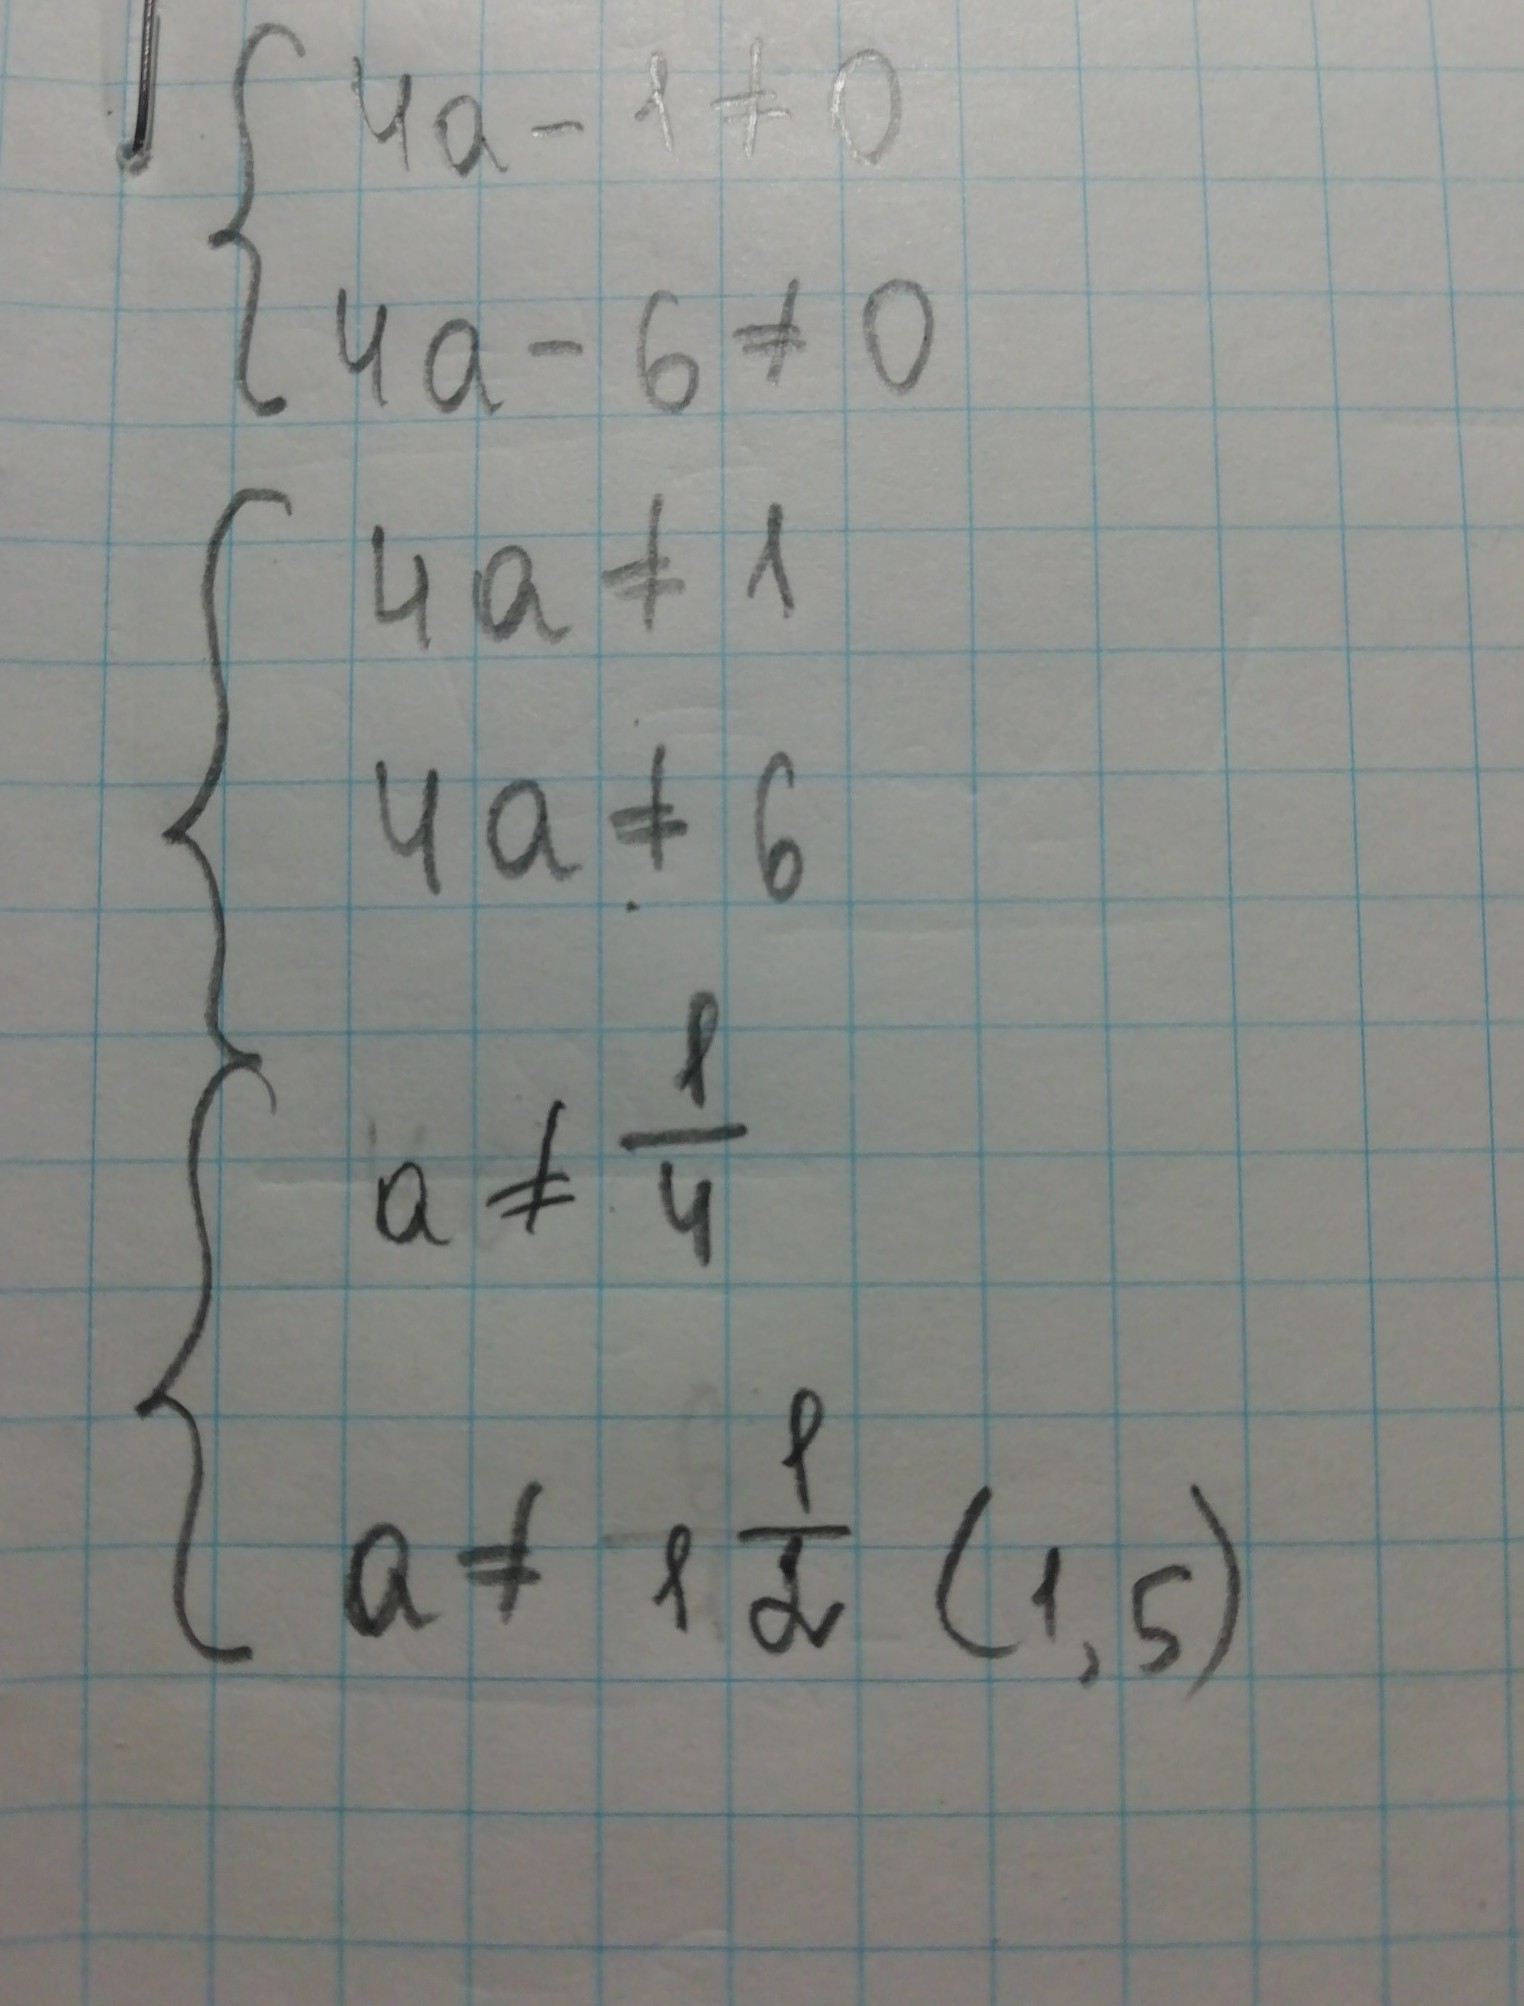 4a - 1 ≠ 0
4a - 6 ≠ 0
4a ≠ 1
4a ≠ 6
a ≠ 1/4
a ≠ 1 1/2 (1,5)